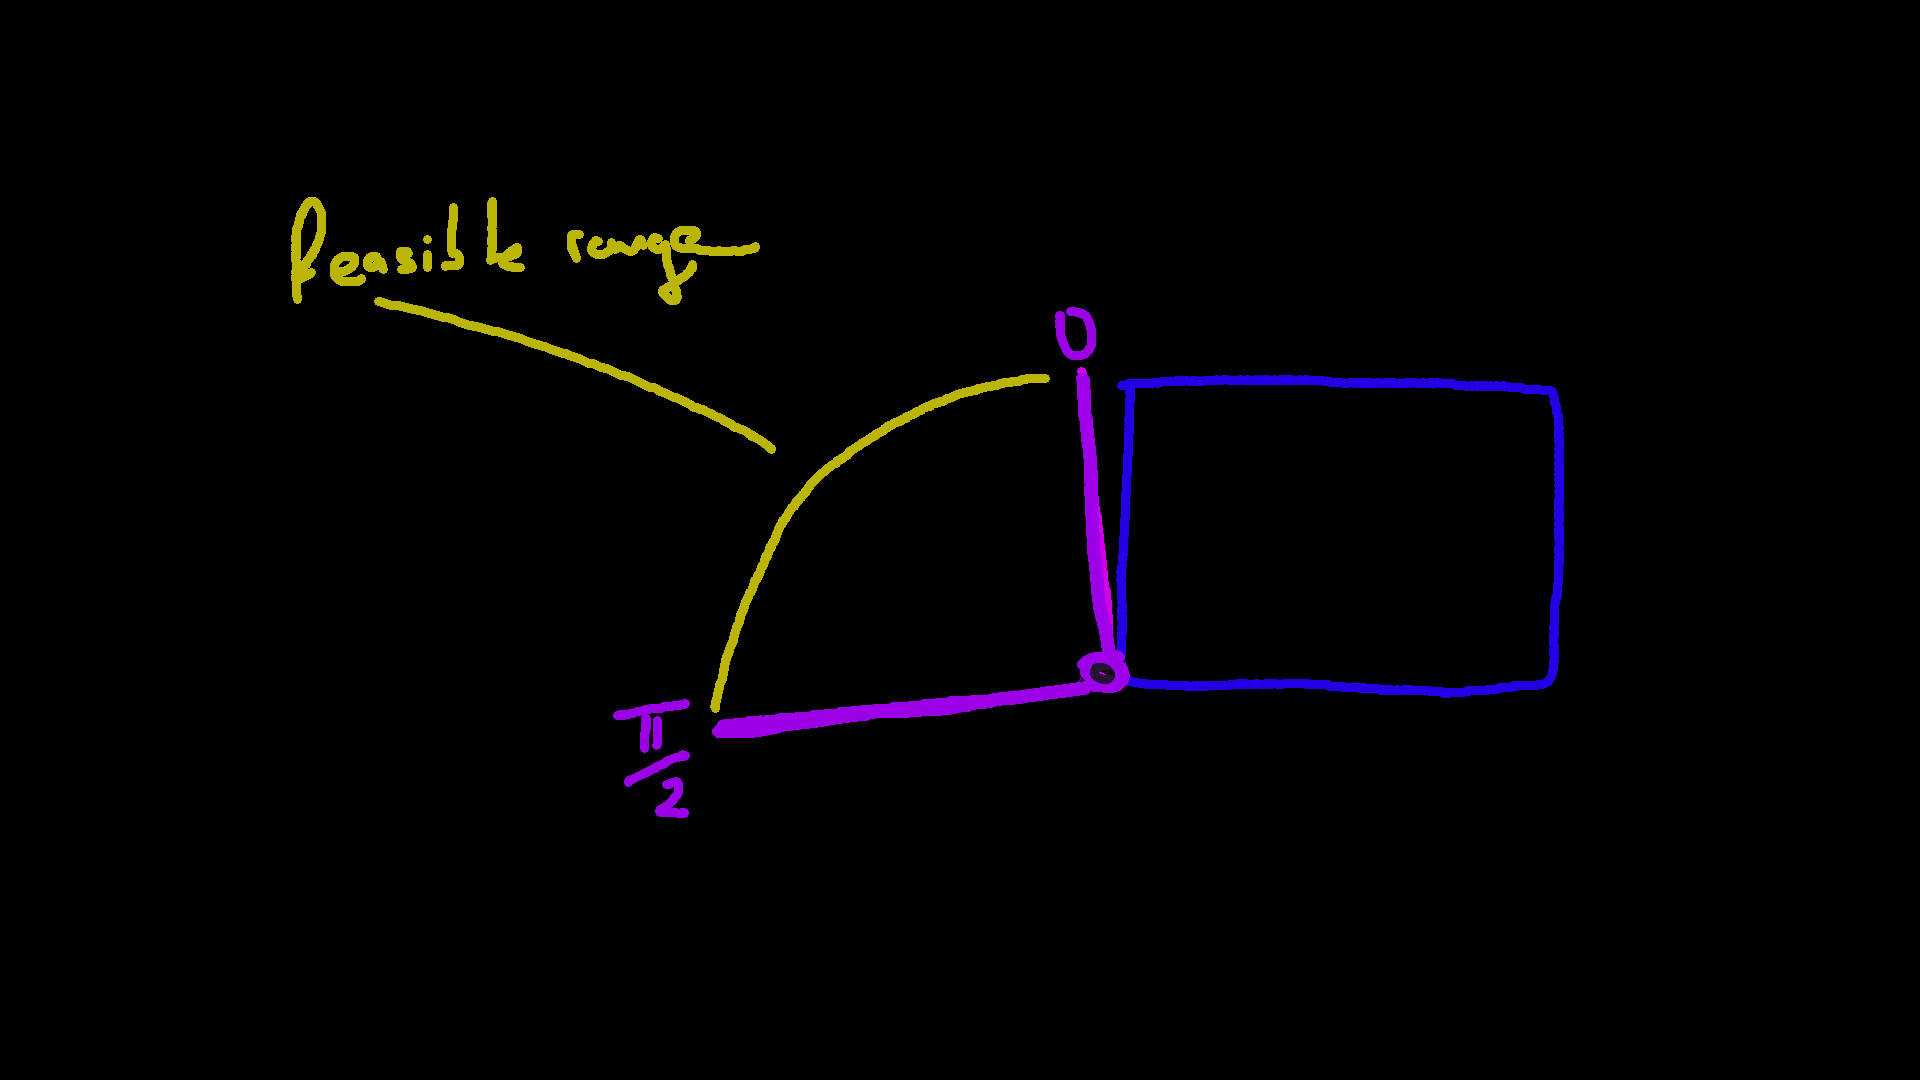 feasible range
0
π/2